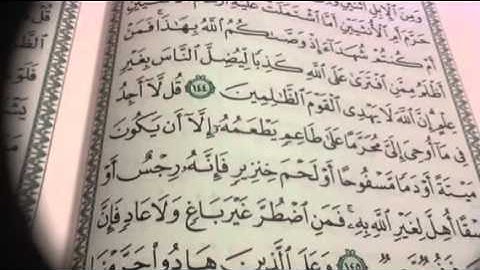 وَمِنَ ٱلْإِبِلِ ٱثْنَيْنِ
حَرَّمَ أَمِ ٱلْأُنثَيَيْنِ أَمَّا ٱشْتَمَلَتْ عَلَيْهِ
أَمْ كُنتُمْ شُهَدَآءَ إِذْ وَصَّىٰكُمُ ٱللَّهُ بِهَٰذَا ۚ فَمَنْ
أَظْلَمُ مِمَّنِ ٱفْتَرَىٰ عَلَى ٱللَّهِ كَذِبًا لِّيُضِلَّ ٱلنَّاسَ بِغَيْرِ
عِلْمٍ ۗ إِنَّ ٱللَّهَ لَا يَهْدِى ٱلْقَوْمَ ٱلظَّٰلِمِينَ ١٤٤ قُل لَّآ أَجِدُ
فِى مَآ أُوحِىَ إِلَىَّ مُحَرَّمًا عَلَىٰ طَاعِمٍ يَطْعَمُهُۥٓ إِلَّآ أَن يَكُونَ
مَيْتَةً أَوْ دَمًا مَّسْفُوحًا أَوْ لَحْمَ خِنزِيرٍ فَإِنَّهُۥ رِجْسٌ أَوْ
سْقًا أُهِلَّ لِغَيْرِ ٱللَّهِ بِهِۦ ۚ فَمَنِ ٱضْطُرَّ غَيْرَ بَاغٍ وَلَا عَادٍ فَإِنَّ
١٤٥ وَعَلَى ٱلَّذِينَ هَادُوا۟ حَرَّمْنَا